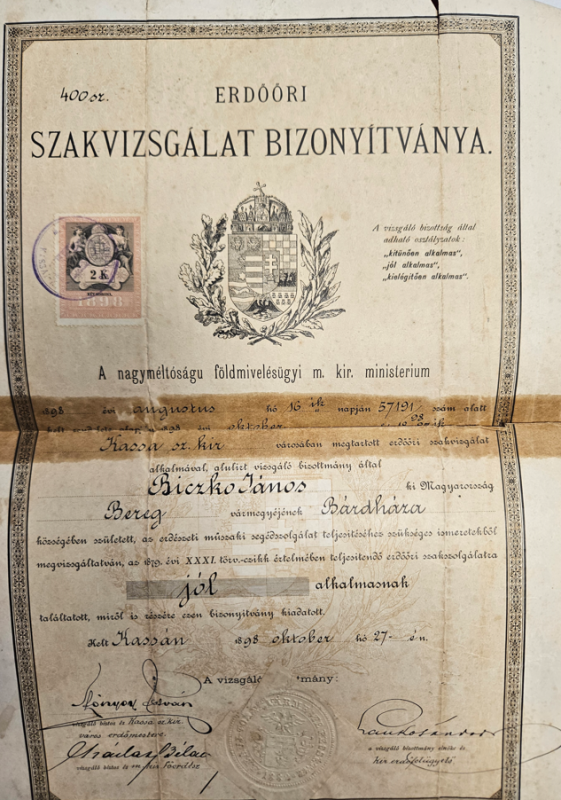 400 sz.
ERDŐŐRI
SZAKVIZSGÁLAT BIZONYÍTVÁNYA.
2 K
1898
A vizsgáló bizottság által
adható osztályzatok:
„kitünően alkalmas",
„jól alkalmas",
„kielégitően alkalmas".
A nagyméltóságu földmivelésügyi m. kir. ministerium
1898 évi augusztus hó 16 ik napján 57191 szám alatt
évi október
Kassa sz. kir városában megtartott erdőőri szakvizsgálat
alkalmával, alulirt vizsgáló bizottmány által
Biczko János ki Magyarország
Bereg vármegyéjének Bárdháza
községében született, az erdészeti műszaki segédszolgálat teljesitéséhez szükséges ismeretekből
megvizsgáltatván, az 1879. évi XXXI. törv.-czikk értelmében teljesitendő erdőőri szakszolgálatra
jól alkalmasnak
találtatott, miről is részére ezen bizonyitvány kiadatott.
Kelt Kassán 1898 október hó 27-én.
A vizsgáló mány:
István
vizsgáló biztos és Kassa sz. kir
város erdőmestere.
Béla
vizsgáló biztos és
a vizsgáló bizottmány elnöke és
kir.